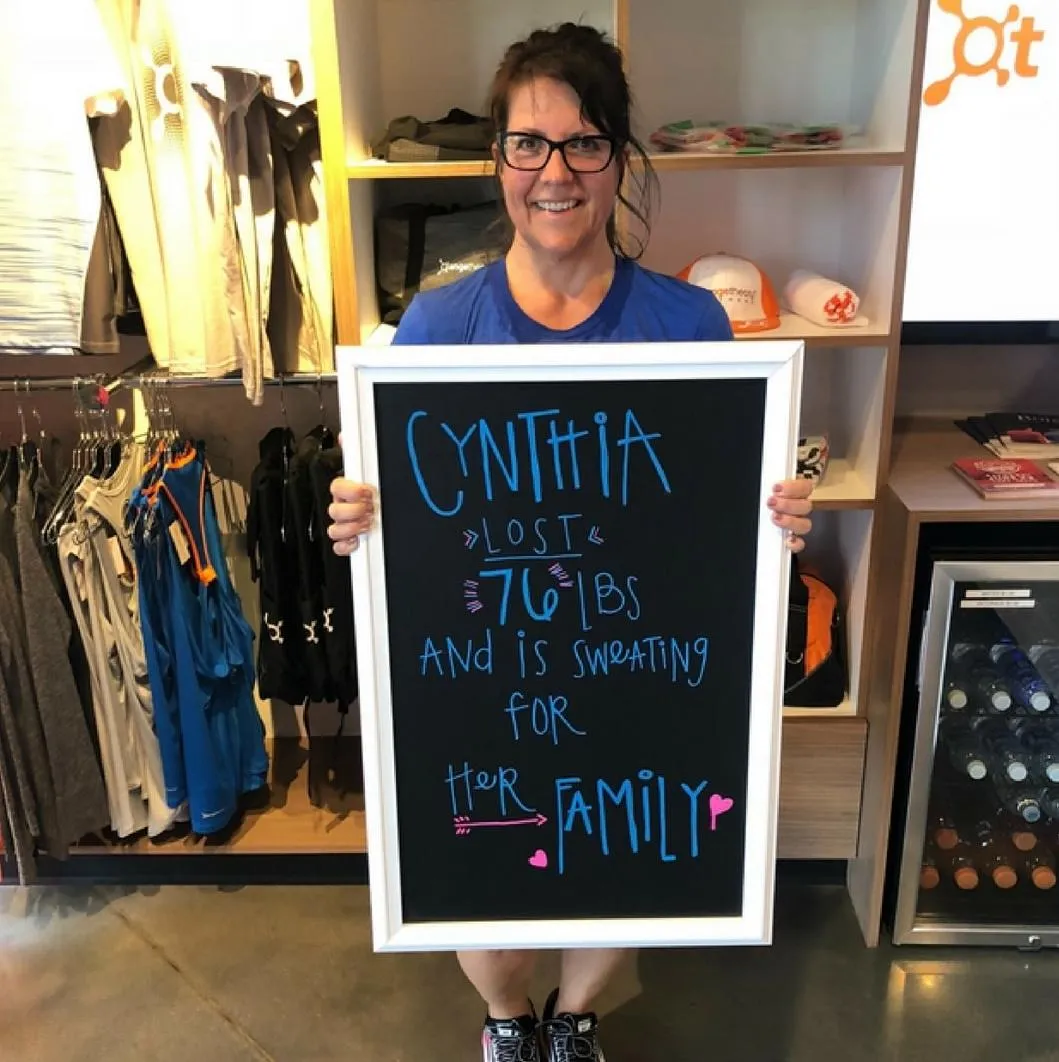 ot
CYNTHIA
LOST
76 LBS
AND IS SWEATING
FOR
HER
FAMILY